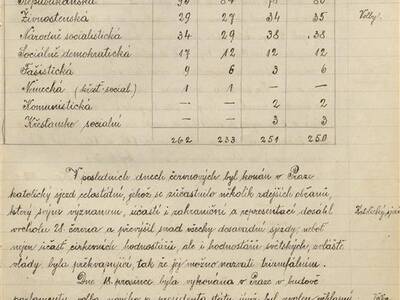 Republikánská
Živnostenská 29 27 34 35 Volby.
Národně socialistická 34 29 38 38
Sociálně demokratická 17 12 12 12
Fašistická 9 6 3 6
Německá (křest. social.) 1 1 — —
Komunistická — — 2 2
Křestansko sociální — — 3 3
262 233 251 250
V posledních dnech červnových byl konán v Praze
katolický sjezd celostátní, jehož se zúčastnilo několik zdejších občanů,
který svým významem, účastí i zahraniční a representací dosáhl Katolický sjezd
vrcholu 28. června a převýšil snad všecky dosavadní sjezdy, neboť
nejen účast církevních hodnostářů, ale i hodnostářů světských, zvláště
vlády byla překvapující, tak že jej možno nazvati triumfálním.
Dne 18. prosince byla vykonána v Praze v budově
parlamentu volba nového presidenta státu, jímž byl zvolen